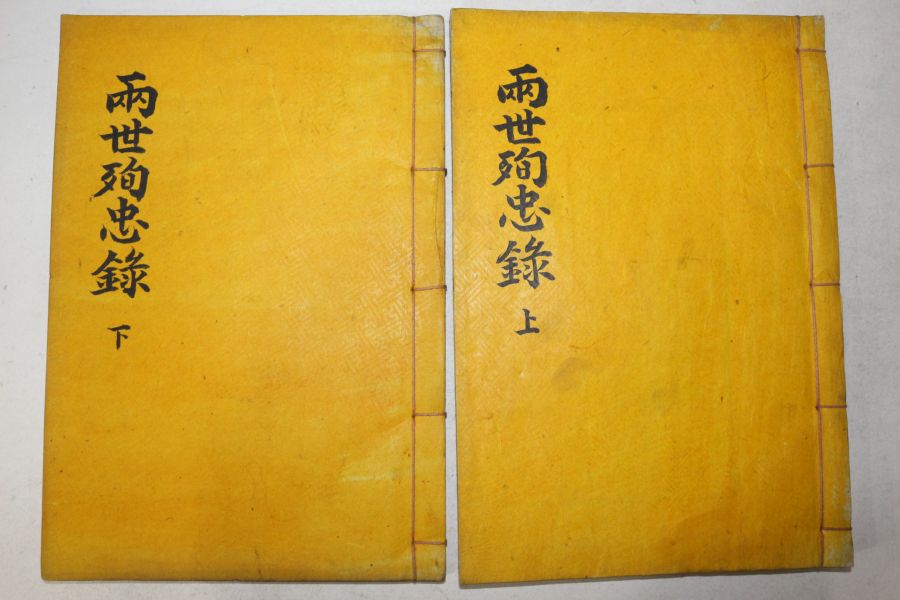 兩世殉忠錄
上
兩世殉忠錄
下